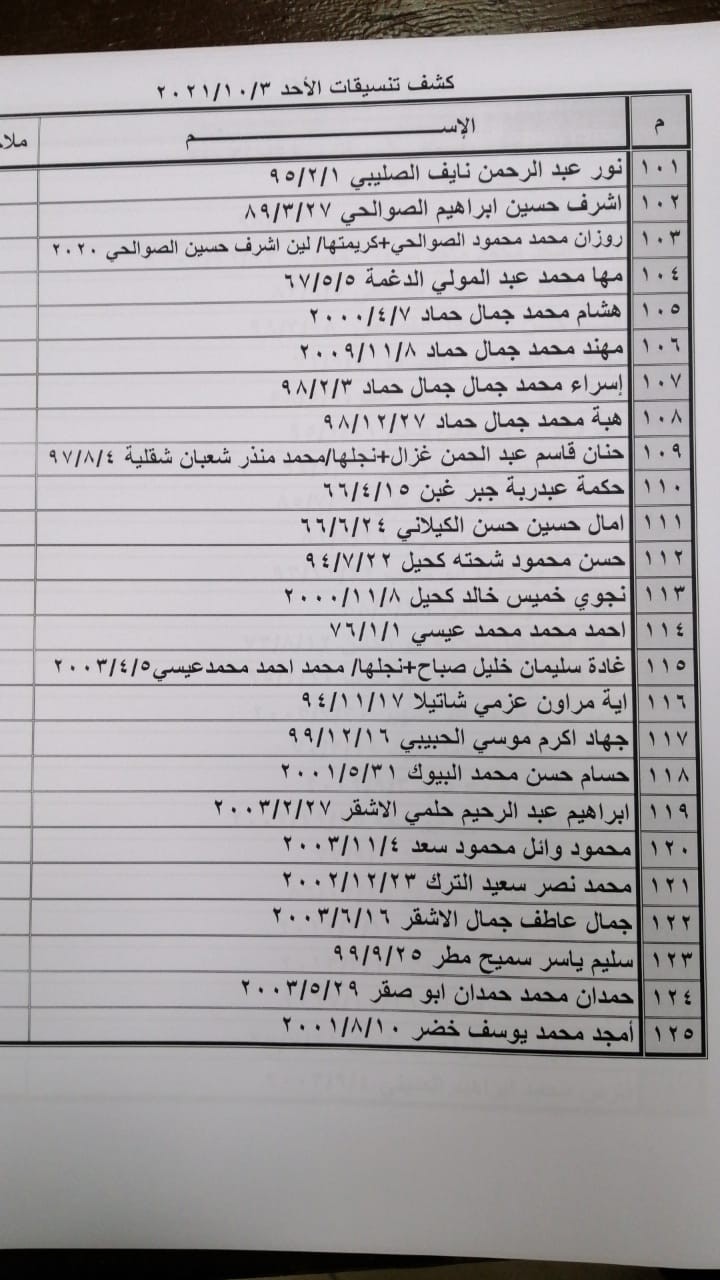 كشف تنسيقات الأحد ٢٠٢١/١٠/٣
م الإســــــــــم ملا
١٠١ نور عبد الرحمن نايف الصليبي ٩٥/٢/١
١٠٢ اشرف حسين ابراهيم الصوالحي ٨٩/٣/٢٧
١٠٣ روزان محمد محمود الصوالحي+كريمتها/ لين اشرف حسين الصوالحي ٢٠٢٠
١٠٤ مها محمد عبد المولي الدغمة ٦٧/٥/٥
١٠٥ هشام محمد جمال حماد ٢٠٠٠/٤/٧
١٠٦ مهند محمد جمال حماد ٢٠٠٩/١١/٨
١٠٧ إسراء محمد جمال جمال حماد ٩٨/٢/٣
١٠٨ هبة محمد جمال حماد ٩٨/١٢/٢٧
١٠٩ حنان قاسم عبد الحمن غزال+نجلها/محمد منذر شعبان شقلية ٩٧/٨/٤
١١٠ حكمة عبدربة جبر غبن ٦٦/٤/١٥
١١١ امال حسين حسن الكيلاني ٦٦/٦/٢٤
١١٢ حسن محمود شحته كحيل ٩٤/٧/٢٢
١١٣ نجوي خميس خالد كحيل ٢٠٠٠/١١/٨
١١٤ احمد محمد محمد عيسي ٧٦/١/١
١١٥ غادة سليمان خليل صباح+نجلها/ محمد احمد محمدعيسي٢٠٠٣/٤/٥
١١٦ اية مراون عزمي شاتيلا ٩٤/١١/١٧
١١٧ جهاد اكرم موسي الحبيبي ٩٩/١٢/١٦
١١٨ حسام حسن محمد البيوك ٢٠٠١/٥/٣١
١١٩ ابراهيم عبد الرحيم حلمي الاشقر ٢٠٠٣/٢/٢٧
١٢٠ محمود وائل محمود سعد ٢٠٠٣/١١/٤
١٢١ محمد نصر سعيد الترك ٢٠٠٢/١٢/٢٣
١٢٢ جمال عاطف جمال الاشقر ٢٠٠٣/٦/١٦
١٢٣ سليم ياسر سميح مطر ٩٩/٩/٢٥
١٢٤ حمدان محمد حمدان ابو صقر ٢٠٠٣/٥/٢٩
١٢٥ أمجد محمد يوسف خضر ٢٠٠١/٨/١٠